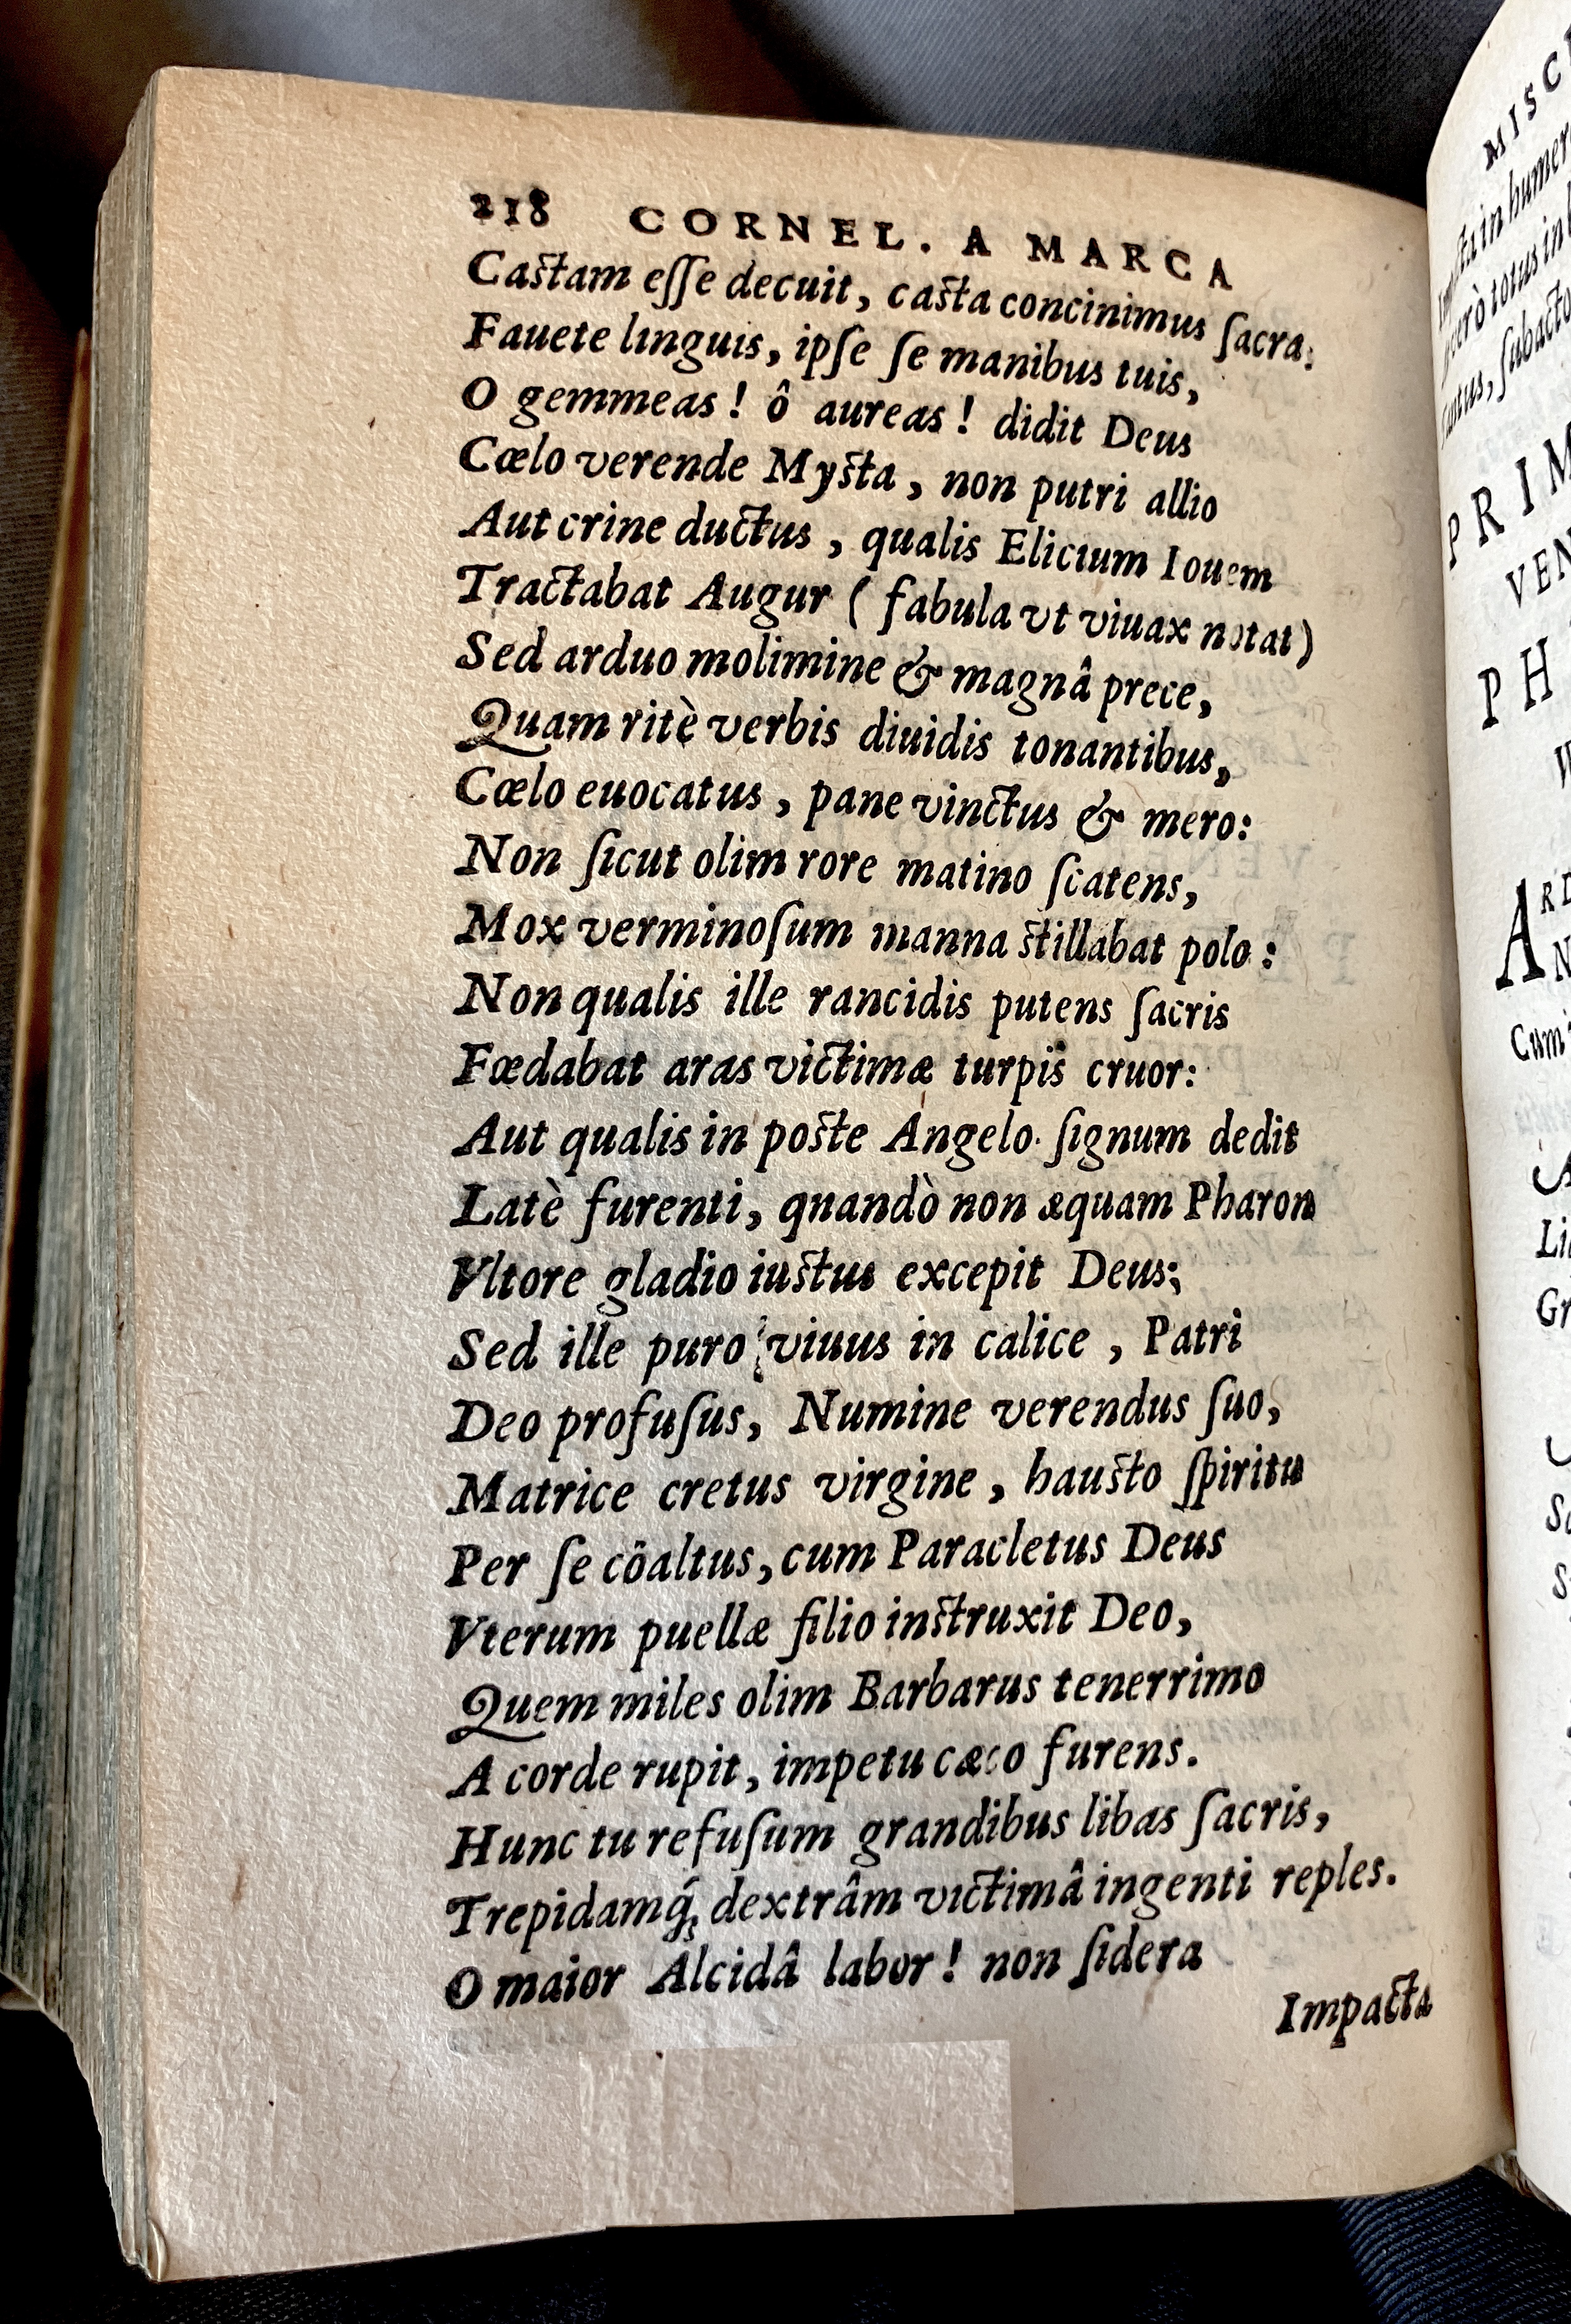 218 CORNEL. A MARCA
Castam eſſe decuit, casta concinimus ſacra:
Fauete linguis, ipſe ſe manibus tuis,
O gemmeas! ô aureas! didit Deus
Cœlo verende Mysta, non putri allio
Aut crine ductus, qualis Elicium Iouem
Tractabat Augur (fabula vt viuax notat)
Sed arduo molimine & magnâ prece,
Quam ritè verbis diuidis tonantibus,
Cœlo euocatus, pane vinctus & mero:
Non ſicut olim rore matino ſcatens,
Mox verminoſum manna stillabat polo:
Non qualis ille rancidis putens ſacris
Fœdabat aras victimæ turpis cruor:
Aut qualis in poste Angelo ſignum dedit
Latè furenti, qnandò non æquam Pharon
Vltore gladio iustus excepit Deus;
Sed ille puro viuus in calice, Patri
Deo profuſus, Numine verendus ſuo,
Matrice cretus virgine, hausto ſpiritu
Per ſe cõaltus, cum Paracletus Deus
Vterum puellæ filio instruxit Deo,
Quem miles olim Barbarus tenerrimo
A corde rupit, impetu cæco furens.
Hunc tu refuſum grandibus libas ſacris,
Trepidamq́; dextrâm victimâ ingenti reples.
O maior Alcidâ labor! non ſidera
Impacta
MISC
in humer
totus in
ſubacto
PRIM
VEN
PH
ARD
N
Cum
Li
Gr